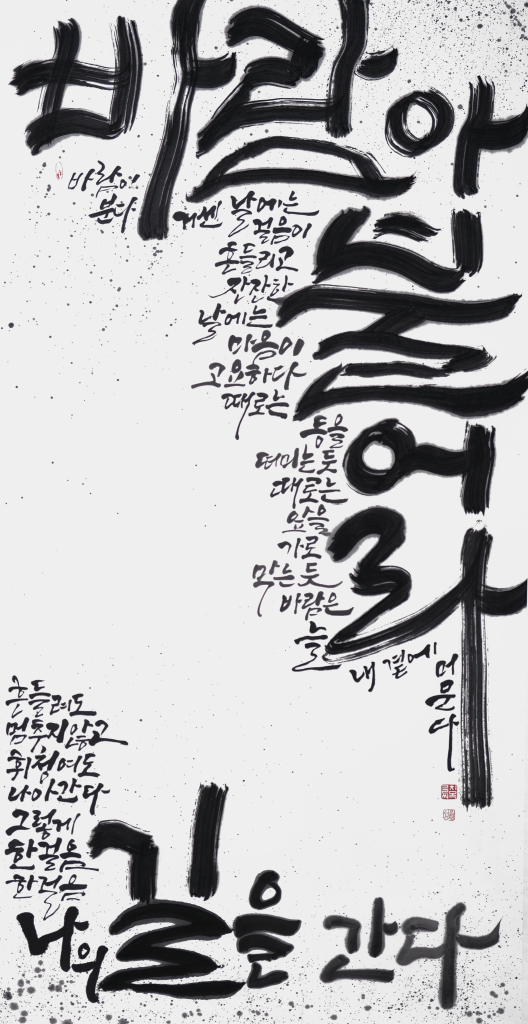 바람아
불어라
바람이
분다
거센 날에는
걸음이
흔들리고
잔잔한
날에는
마음이
고요하다
때로는
등을
떠미는 듯
때로는
앞을
가로
막는 듯
바람은
늘
내 곁에
머
문
다
흔들려도
멈추지 않고
휘청여도
나아간다
그렇게
한걸음
한걸음
나의 길을 간다